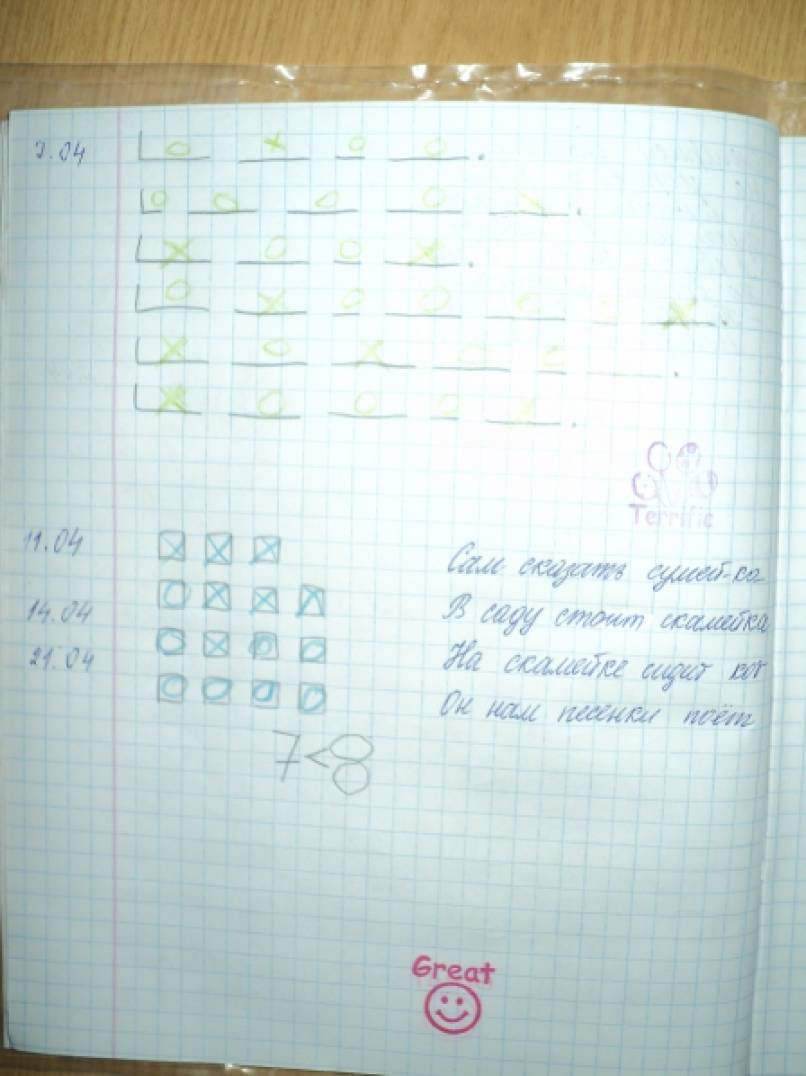 7.04
Terrific
11.04
Сам сказать
14.04
В саду стоит скамейка
21.04
На скамейке сидит кот
Он нам песенки поёт
7<8
Great